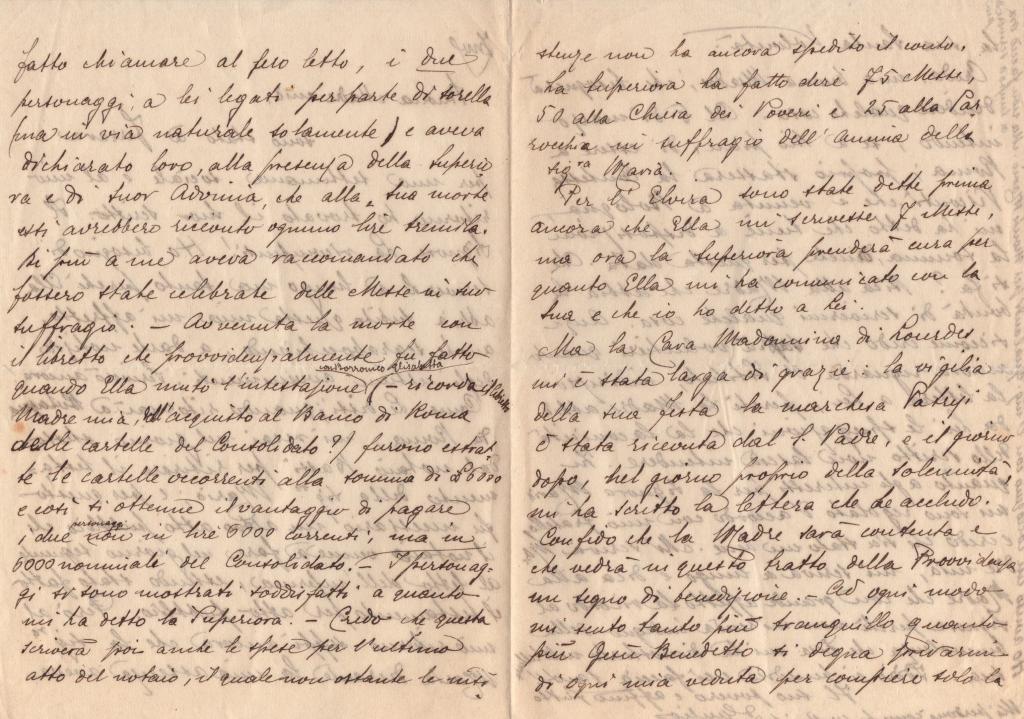 fatto chiamare al suo letto, i due
personaggi, a lei legati per parte di sorella
(ma in via naturale solamente) e aveva
dichiarato loro, alla presenza della Superio
ra e di Suor Advinia, che alla sua morte
essi avrebbero ricevuto ognuno lire tremila.
Di più a me aveva raccomandato che
fossero state celebrate delle Messe in suo
suffragio. - Avvenuta la morte con
il libretto che provvidenzialmente fu fatto
con Borromeo Elisabetta
quando Ella mutò l'intestazione (- ricorda
Madre mia, all'acquisto al Banco di Roma
delle cartelle del Consolidato?) furono estrat
te le cartelle occorrenti alla somma di £ 6000
e così si ottenne il vantaggio di pagare
personaggi
i due non in lire 6000 correnti, ma in
6000 nominali del Consolidato. - I personag-
gi si sono mostrati soddisfatti a quanto
mi ha detto la Superiora. - Credo che questa
scriverà poi anche le spese per l'ultimo
atto del notaio, il quale non ostante le insi
stenze non ha ancora spedito il conto.
La Superiora ha fatto dire 75 Messe,
50 alla Chiesa dei Poveri e 25 alla Par
rocchia in suffragio dell'anima della
sig.ra Maria.
Per l' Elvira sono state dette prima
ancora che Ella mi scrivesse 7 Messe,
ma ora la Superiora prenderà cura per
quanto Ella mi ha comunicato con la
Sua e che io ho detto a Lei.
Ma la Cara Madonnina di Lourdes
mi è stata larga di grazie: la vigilia
della sua festa la marchesa Patrizi
è stata ricevuta dal S. Padre, e il giorno
dopo, nel giorno proprio della solennità,
mi ha scritto la lettera che Le accludo.
Confido che la Madre sarà contenta e
che vedrà in questo tratto della Provvidenza
un segno di benedizione. - Ad ogni modo
mi sento tanto più tranquillo quanto
più Gesù Benedetto si degna privarmi
di ogni mia veduta per compiere solo la